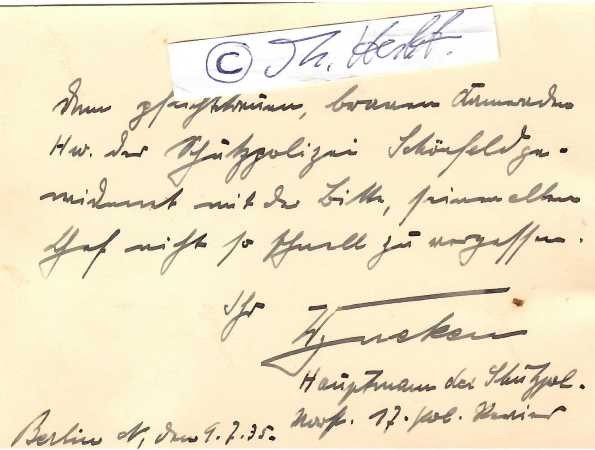 © Th. Herbf.
dem pflichttreuen, braven Kameraden
Hw. der Schutzpolizei Schönfeld ge-
widmet mit der Bitte, seinen alten
Chef nicht so schnell zu vergessen.
Ihr
Hauptmann der Schutzpol.
17. Pol. Revier
Berlin N, den 9.7.35.